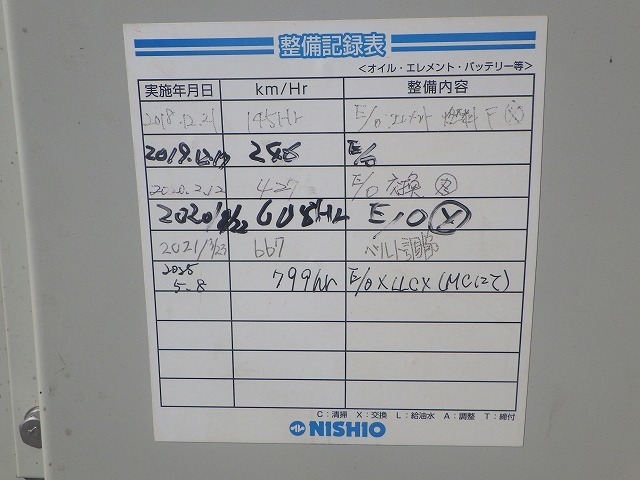 整備記録表
＜オイル・エレメント・バッテリー等＞
実施年月日 km/Hr 整備内容
2018.12.21 145Hr E/O エレメント 燃料F Ⓧ
2019.12.19 E/O
2020.2.12 427 E/O 交換 Ⓧ
608Hr E/O Ⓧ
2021/3/23 667 ベルト調整
2025
5.8 799hr E/O X LLC X (MCにて)
C：清掃 X：交換 L：給油水 A：調整 T：締付
NISHIO